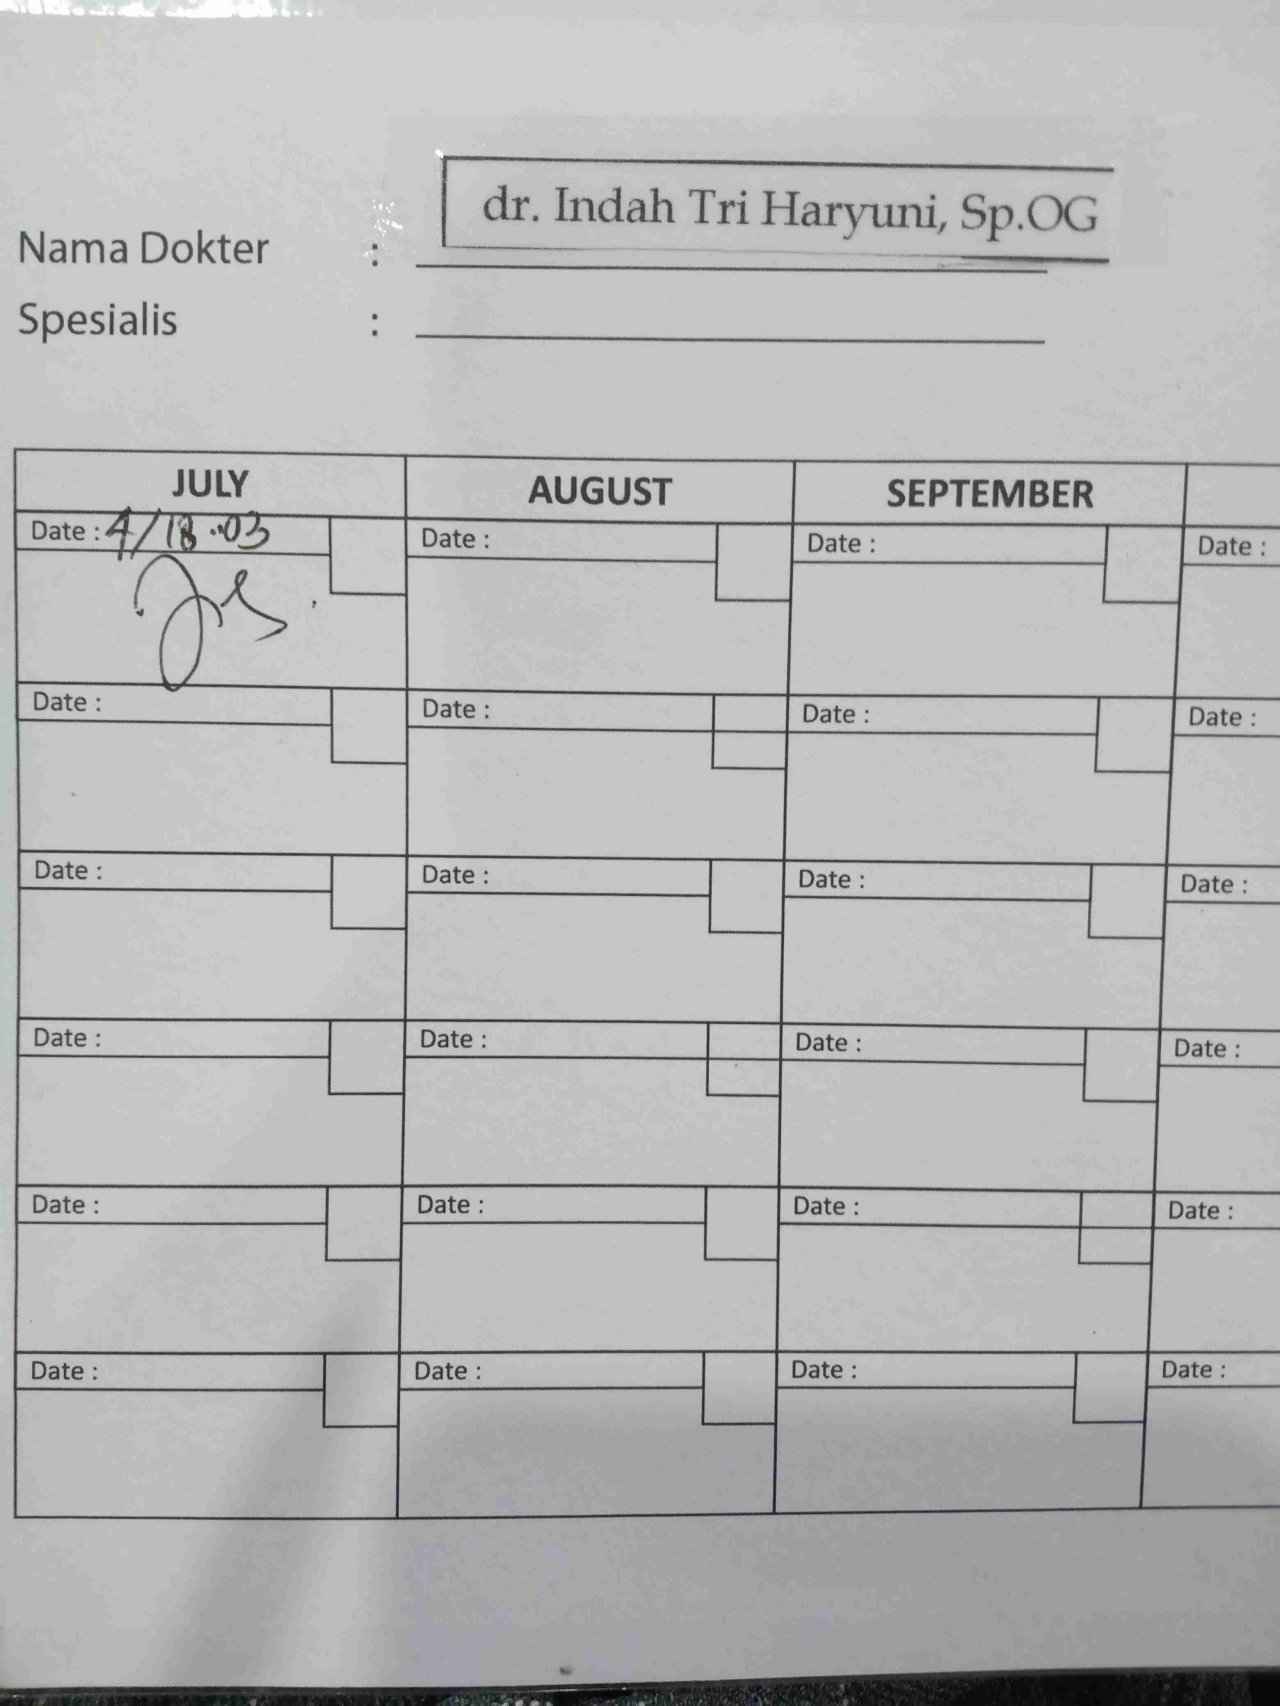 dr. Indah Tri Haryuni, Sp.OG
Nama Dokter :
Spesialis :
JULY AUGUST SEPTEMBER
Date : 4/18..03 Date : Date : Date :
Date : Date : Date : Date :
Date : Date : Date : Date :
Date : Date : Date : Date :
Date : Date : Date : Date :
Date : Date : Date : Date :